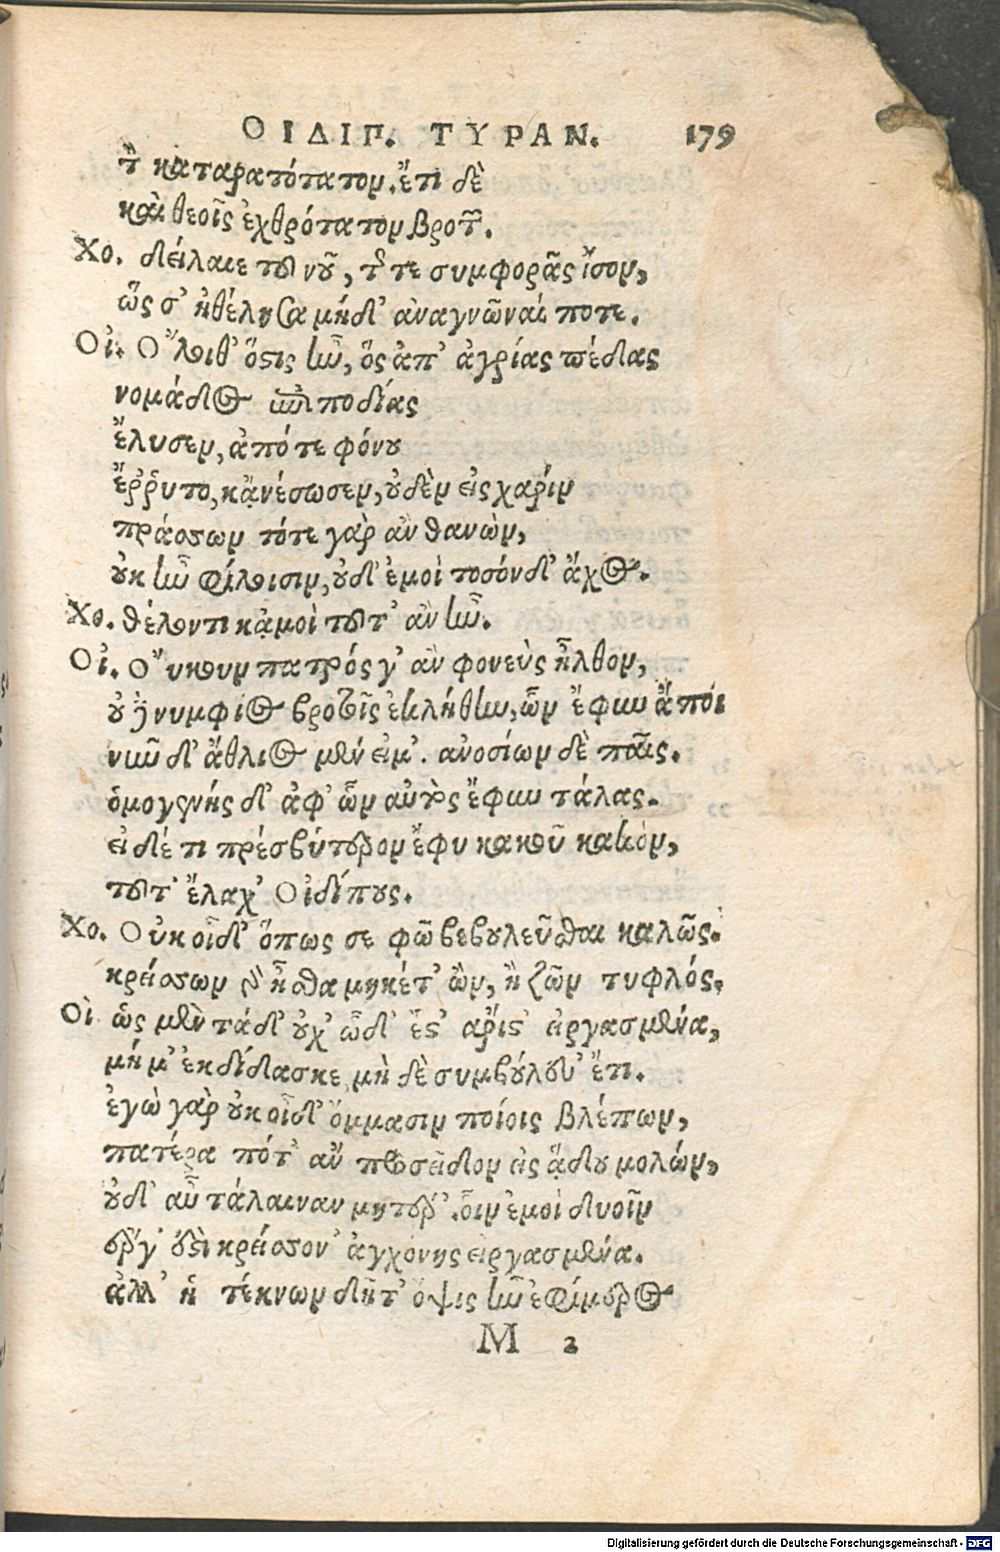 ΟΙΔΙΠ. ΤΥΡΑΝ. 179
τὸν καταρατότατον, ἔτι δὲ
καὶ θεοῖς ἐχθρότατον βροτῶν.
Χο. δείλαιε τοῦ νοῦ, τῆς τε συμφορᾶς ἴσον,
ὥς σ' ἠθέλησα μηδ' ἀναγνῶναί ποτε.
Οἰ. Ὄλοιθ' ὅστις ἦν, ὃς ἀπ' ἀγρίας πέδας
νομάδος ἐπιποδίας
ἔλυσεν, ἀπό τε φόνου
ἔρρυτο, κἀνέσωσεν, οὐδὲν εἰς χάριν
πράσσων τότε γὰρ ἂν θανὼν,
οὐκ ἦν φίλοισιν, οὐδ' ἐμοὶ τοσόνδ' ἄχος.
Χο. θέλοντι κἀμοὶ τοῦτ' ἂν ἦν.
Οἰ. Οὔκουν πατρός γ' ἂν φονεὺς ἦλθον,
οὐδὲ νυμφίος βροτοῖς ἐκλήθην, ὧν ἔφυν ἄπο
νῦν δ' ἄθλιος μέν εἰμ'. ἀνοσίων δὲ παῖς.
ὁμογενής δ' ἀφ' ὧν αὐτὸς ἔφυν τάλας.
εἰ δέ τι πρέσβύτερον ἔφυ κακοῦ κακὸν,
τοῦτ' ἔλαχ' Οἰδίπους.
Χο. Οὐκ οἶδ' ὅπως σε φῶ βεβουλεῦσθαι καλῶς.
κρείσσων γὰρ ἦσθα μηκέτ' ὢν, ἢ ζῶν τυφλός.
Οἰ ὡς μὲν τάδ' οὐχ' ὧδ' ἔστ' ἄριστ' εἰργασμένα,
μή μ' ἐκδίδασκε, μὴ δὲ συμβούλευ' ἔτι.
ἐγὼ γὰρ οὐκ οἶδ' ὄμμασιν ποίοις βλέπων,
πατέρα πότ' ἂν προσεῖδον εἰς ᾅδου μολών,
οὐδ' αὖ τάλαιναν μητέρ'. οἷν ἐμοὶ δυοῖν
ἔργ' ἐστὶ κρείσσον' ἀγχόνης εἰργασμένα.
ἀλλ' ἡ τέκνων δῆτ' ὄψις ἦν ἐφίμερος
M 2
Digitalisierung gefördert durch die Deutsche Forschungsgemeinschaft - DFG